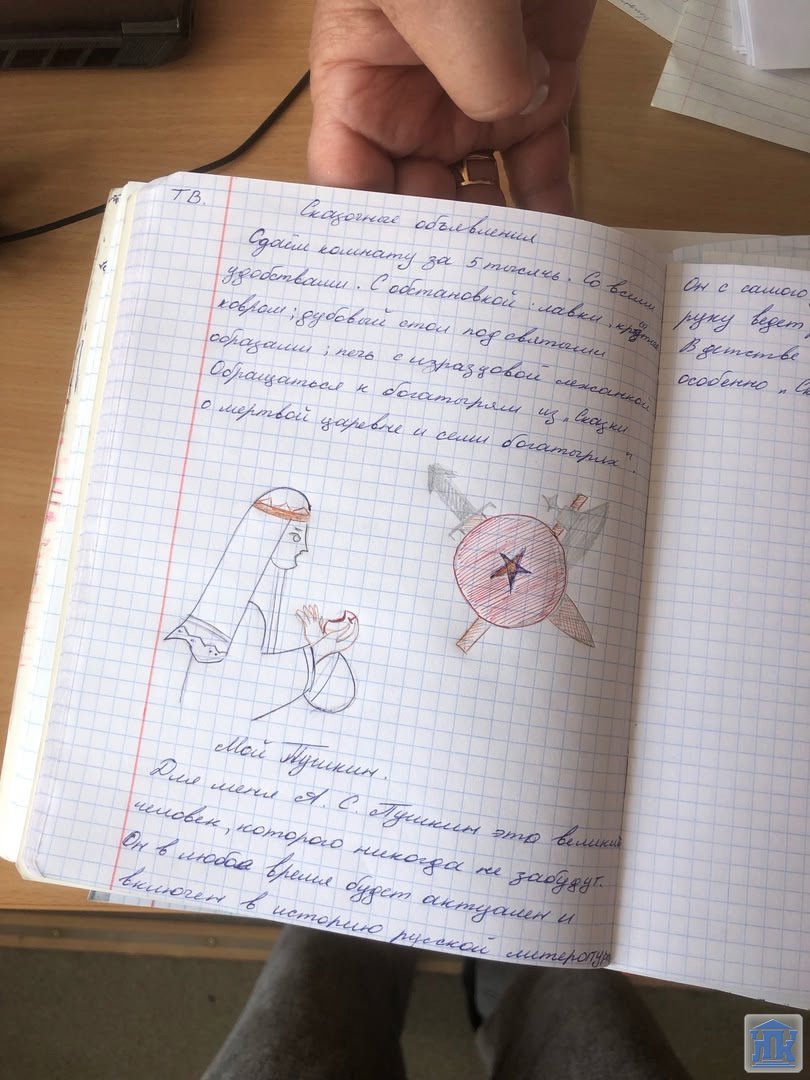 ТВ.
Сказочные объявления
Сдаём комнату за 5 тысячь. Со всеми
удобствами. С обстановкой: лавки, крытые
ковром; дубовый стол под святыми
образами; печь с израздовой лежанкой
Обращаться к богатырям из „Сказки
о мертвой царевне и семи богатырях".
Мой Пушкин.
Для меня А. С. Пушкин это великий
человек, которого никогда не забудут.
Он в любое время будет актуален и
включен в историю русской литератур
Он с самого
руку ведет
В детстве
особенно „Ск